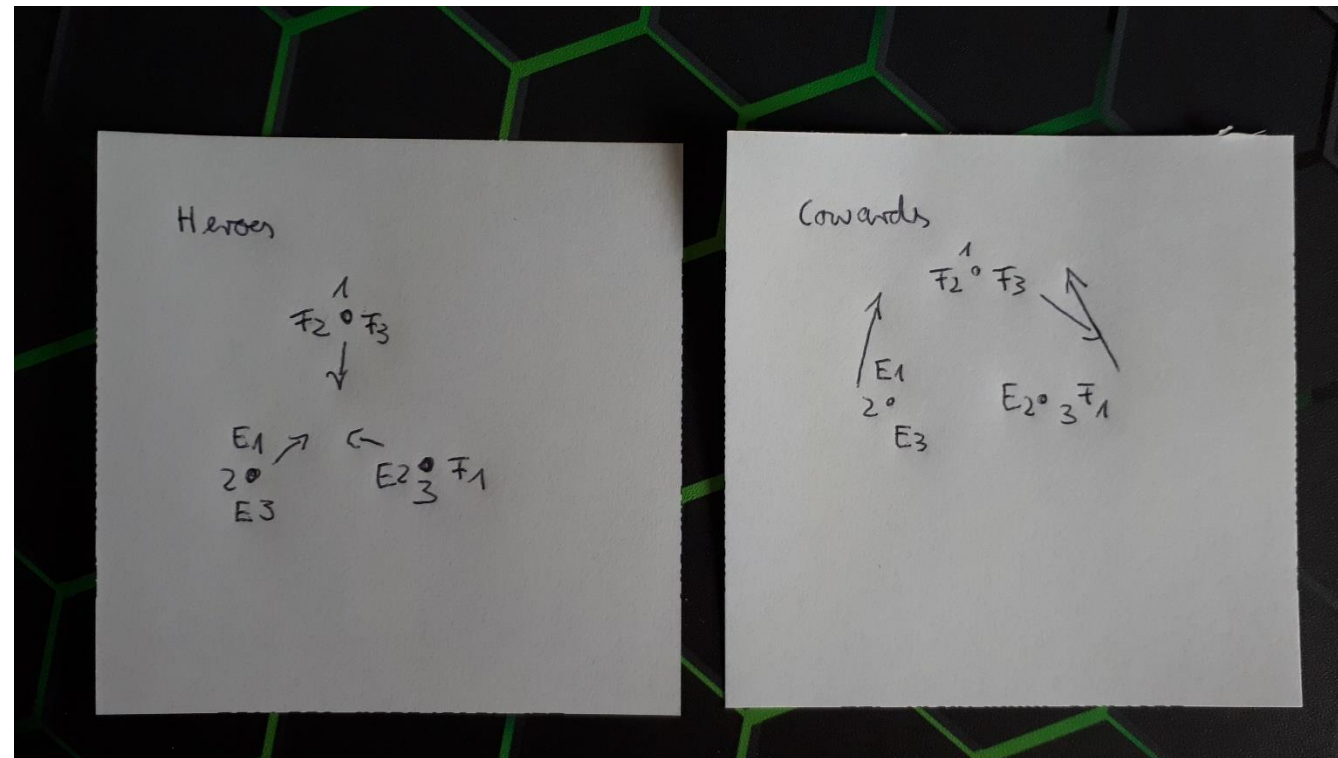 Heroes
1
F2 F3
E1
2
E3
E2 F1
3
Cowards
1
F2 F3
E1
2
E3
E2 3 F1